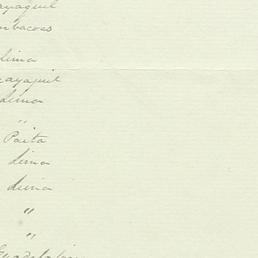 ayaquil
mbacoes
Lima
uayaquil
Lima
"
Paita
Lima
Lima
"
"